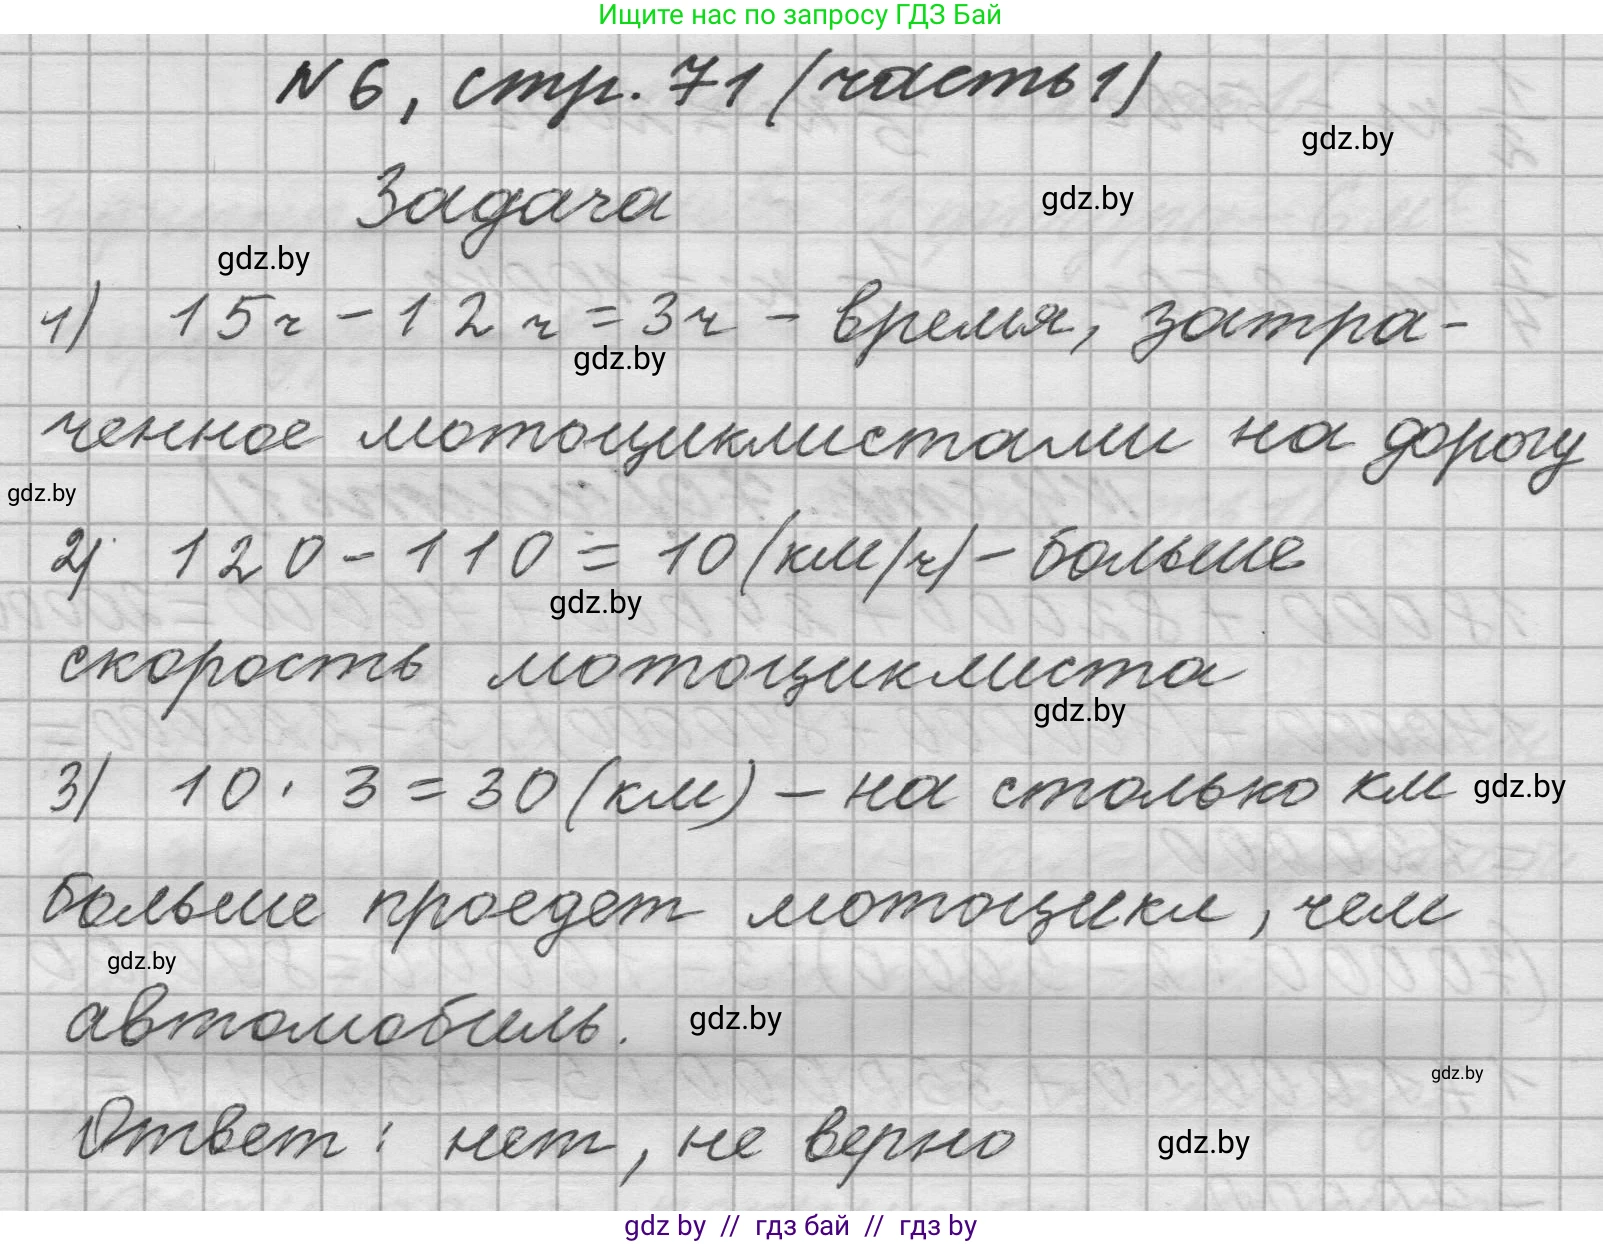 Ищите нас по запросу ГДЗ Бай
№ 6, стр. 71 (часть 1)
gdz.by
Задача
gdz.by
gdz.by
1) 15ч - 12ч = 3ч - время, затра-
gdz.by
ченное мотоциклистами на дорогу
gdz.by
2) 120 - 110 = 10 (км/ч) - больше
gdz.by
скорость мотоциклиста
gdz.by
3) 10 · 3 = 30 (км) - на столько км
gdz.by
больше проедет мотоцикл, чем
gdz.by
автомобиль.
gdz.by
gdz.by
Ответ: нет, не верно
gdz.by
gdz by // гдз бай // гдз by